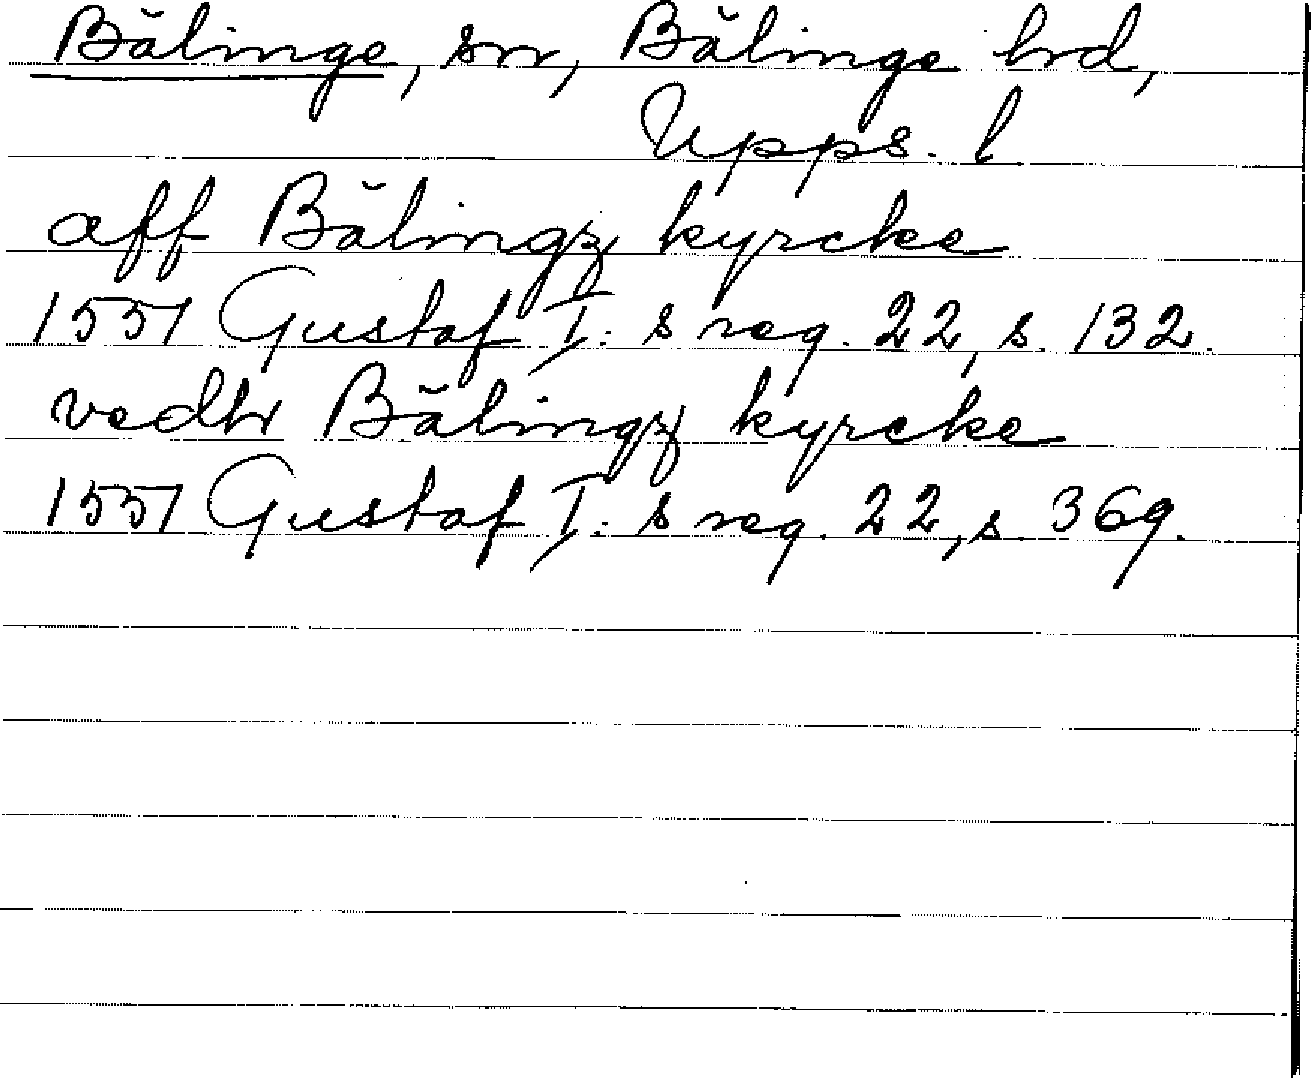 Bälinge, sn, Bälinge hd,
Upps. l
aff Bälingz kyrcke
1551 Gustaf I: s reg. 22, s. 132.
vedh Bälingz kyrcke
1551 Gustaf I: s reg. 22, s. 369.